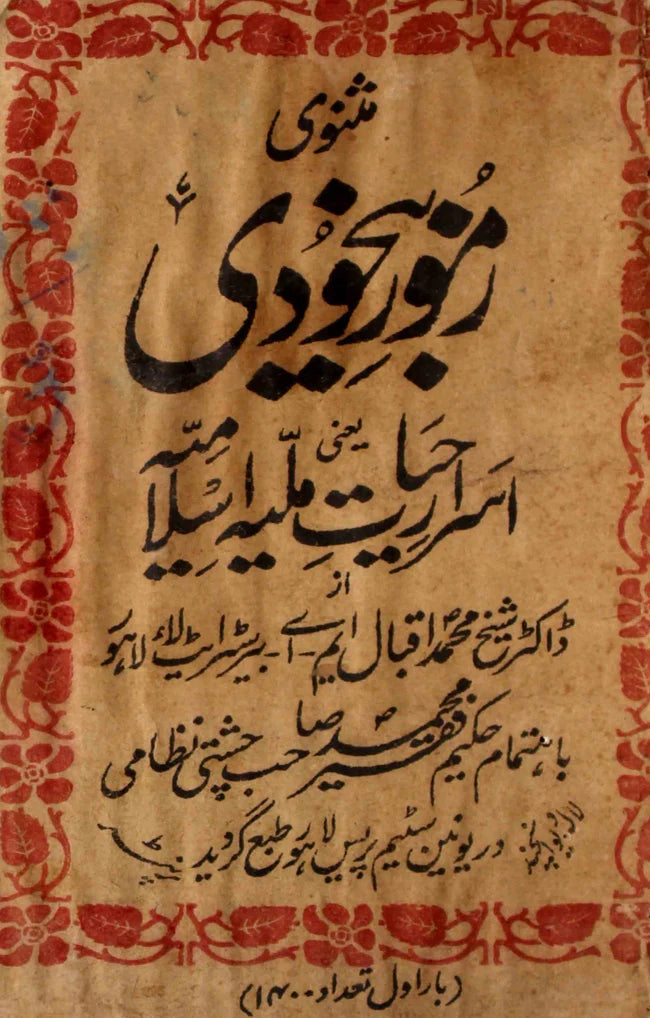 مثنوی
رموزِ بیخودی
یعنی
اسرارِ حیاتِ ملّیہ اسلامیّہ
از
ڈاکٹر شیخ محمد اقبال ایم۔ اے۔ بیرسٹر ایٹ لاء لاہور
باہتمام حکیم فقیر محمد صاحب چشتی نظامی
در یونین سٹیم پریس لاہور طبع گردید
(بار اول تعداد